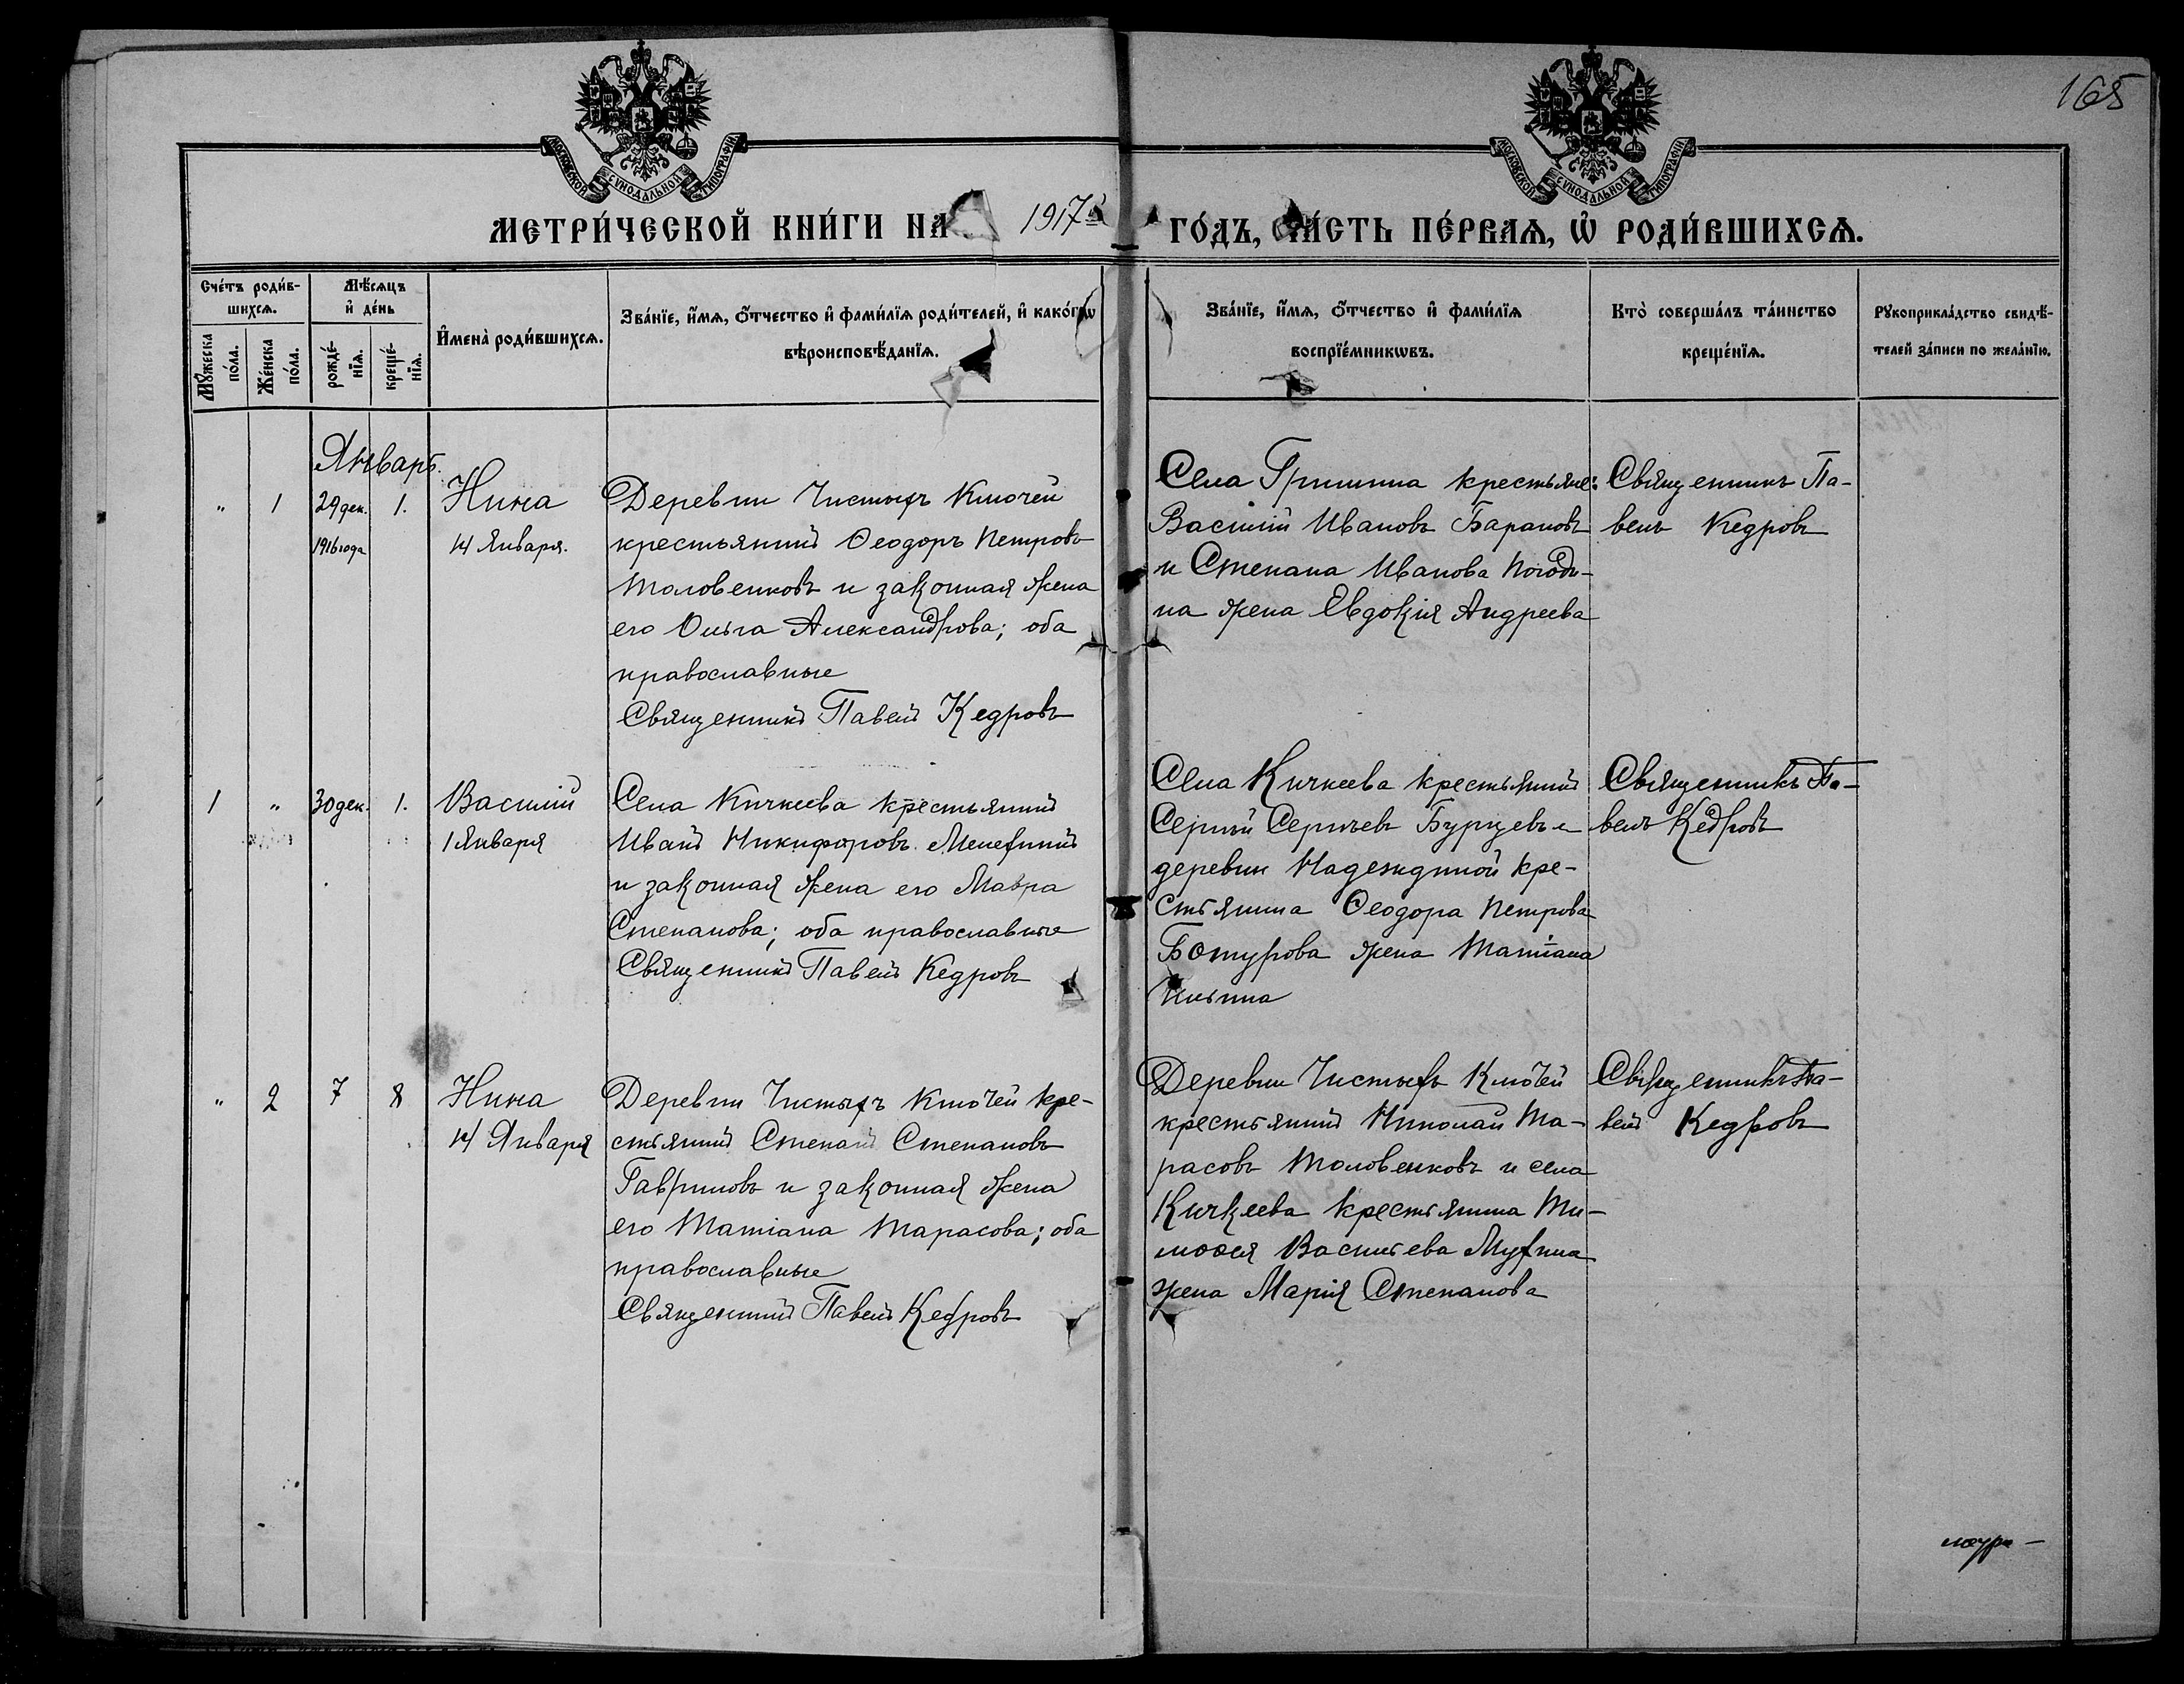 165
МОСКОВСКОЙ СѴНОДАЛЬНОЙ ТИПОГРАФІИ
МОСКОВСКОЙ СѴНОДАЛЬНОЙ ТИПОГРАФІИ
МЕТРИ́ЧЕСКОЙ КНИ́ГИ НА 1917й ГО́ДЪ, ЧА́СТЬ ПЕ́РВАЯ, Ѽ РОДИ́ВШИХСЯ.
Сче́тъ роди́в-
шихся.
Мꙋ́жеска по́ла.
Же́нска по́ла.
Мѣ́сяцъ
и҆ де́нь
рожде́-нїя.
креще́-нїя.
И҆мена̀ роди́вшихся.
Зва́нїе, и҆́мя, ѻ҆́тчество и҆ фами́лїя роди́телей, и҆ како́гѡ
вѣроисповѣ́данїя.
Зва́нїе, и҆́мя, ѻ҆́тчество и҆ фами́лїя
воспрїе́мникѡвъ.
Кто̀ соверша́лъ та́инство
креще́нїя.
Рꙋкоприкла́дство свидѣ́-
телей за́писи по жела́нїю.
Январь.
" 1 29 дек. 1.
1916 года
Нина
14 Января.
Деревни Чистыхъ Ключей
крестьянинъ Ѳеодоръ Петровъ
Толовенковъ и законная жена
его Ольга Александрова; оба
православные
Священникъ Павелъ Кедровъ
Села Гришина крестьяне:
Василий Ивановъ Барановъ
и Степана Иванова Погоди-
на жена Евдокія Андреева
Священникъ Па-
велъ Кедровъ
1 " 30 дек. 1.
Василий
1 Января
Села Кичкеева крестьянинъ
Иванъ Никифоровъ Мелехинъ
и законная жена его Мавра
Степанова; оба православные
Священникъ Павелъ Кедровъ
Села Кичкеева крестьянинъ
Сергий Сергѣевъ Бурцевъ и
деревни Надеждиной кре-
стьянина Ѳеодора Петрова
Ботурова жена Татіана
Ильина
Священникъ Па-
велъ Кедровъ
" 2 7 8
Нина
14 Января
Деревни Чистыхъ Ключей кре-
стьянинъ Степанъ Степановъ
Гавриловъ и законная жена
его Татіана Тарасова; оба
православные
Священникъ Павелъ Кедровъ
Деревни Чистыхъ Ключей
крестьянинъ Николай Та-
расовъ Толовенковъ и села
Кичкеева крестьянина Ти-
моѳея Васильева Мухина
жена Марія Степанова
Священникъ Па-
велъ Кедровъ